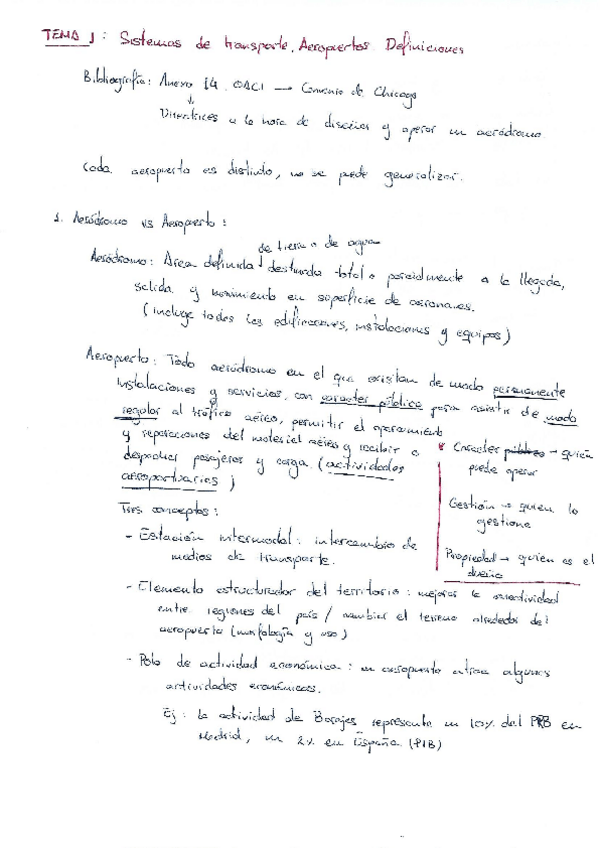 TEMA 1: Sistemas de transporte. Aeropuertos. Definiciones
Bibliografía: Anexo 14 OACI → Convenio de Chicago
↓
Directrices a la hora de diseñar y operar un aeródromo
Cada aeropuerto es distinto, no se puede generalizar.
1. Aeródromo vs Aeropuerto:
de tierra o de agua
Aeródromo: Área definida destinada total o parcialmente a la llegada,
salida y movimiento en superficie de aeronaves.
(incluye todas las edificaciones, instalaciones y equipos)
Aeropuerto: Todo aeródromo en el que existan de modo permanente
instalaciones y servicios, con carácter público para asistir de modo
regular al tráfico aéreo, permitir el aparcamiento
y reparaciones del material aéreo y recibir o
despachar pasajeros y carga. (actividades
aeroportuarias)
* Carácter público → quién
puede operar
Gestión → quien lo
gestiona
Propiedad → quien es el
dueño
Tres conceptos:
- Estación intermodal: intercambio de
medios de transporte.
- Elemento estructurador del territorio: mejorar la conectividad
entre regiones del país / cambiar el terreno alrededor del
aeropuerto (morfología y uso)
- Polo de actividad económica: un aeropuerto atrae algunas
actividades económicas.
Ej: la actividad de Barajas representa un 10% del PIB en
Madrid, un 2% en España (PIB)